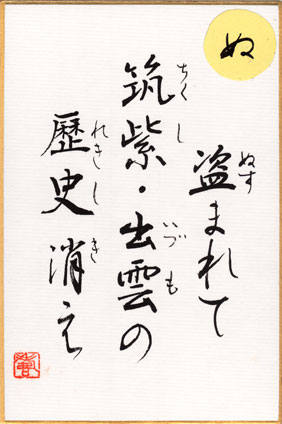 ぬ
盗まれて
筑紫・出雲の
歴史消え
ぬす
ちくし
いづも
れきし
き